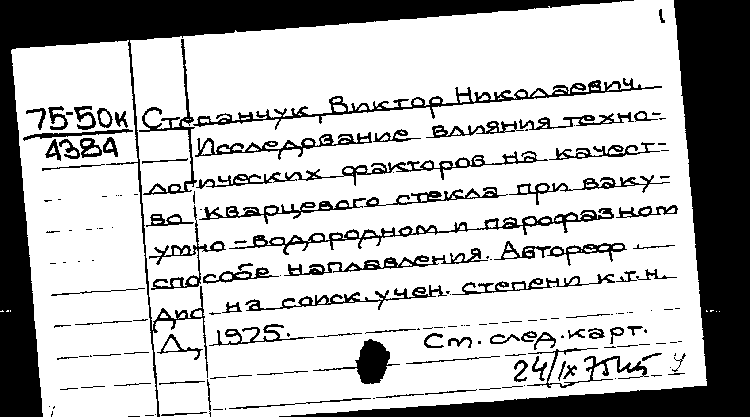 1
75-50к Степанчук, Виктор Николаевич.
4384 Исследование влияния техно-
логических факторов на качест-
во кварцевого стекла при ваку-
умно-водородном и парофазном
способе наплавления. Автореф.
дис. на соиск. учен. степени к.т.н.
Л., 1975.
См. след. карт.
24/IX 75